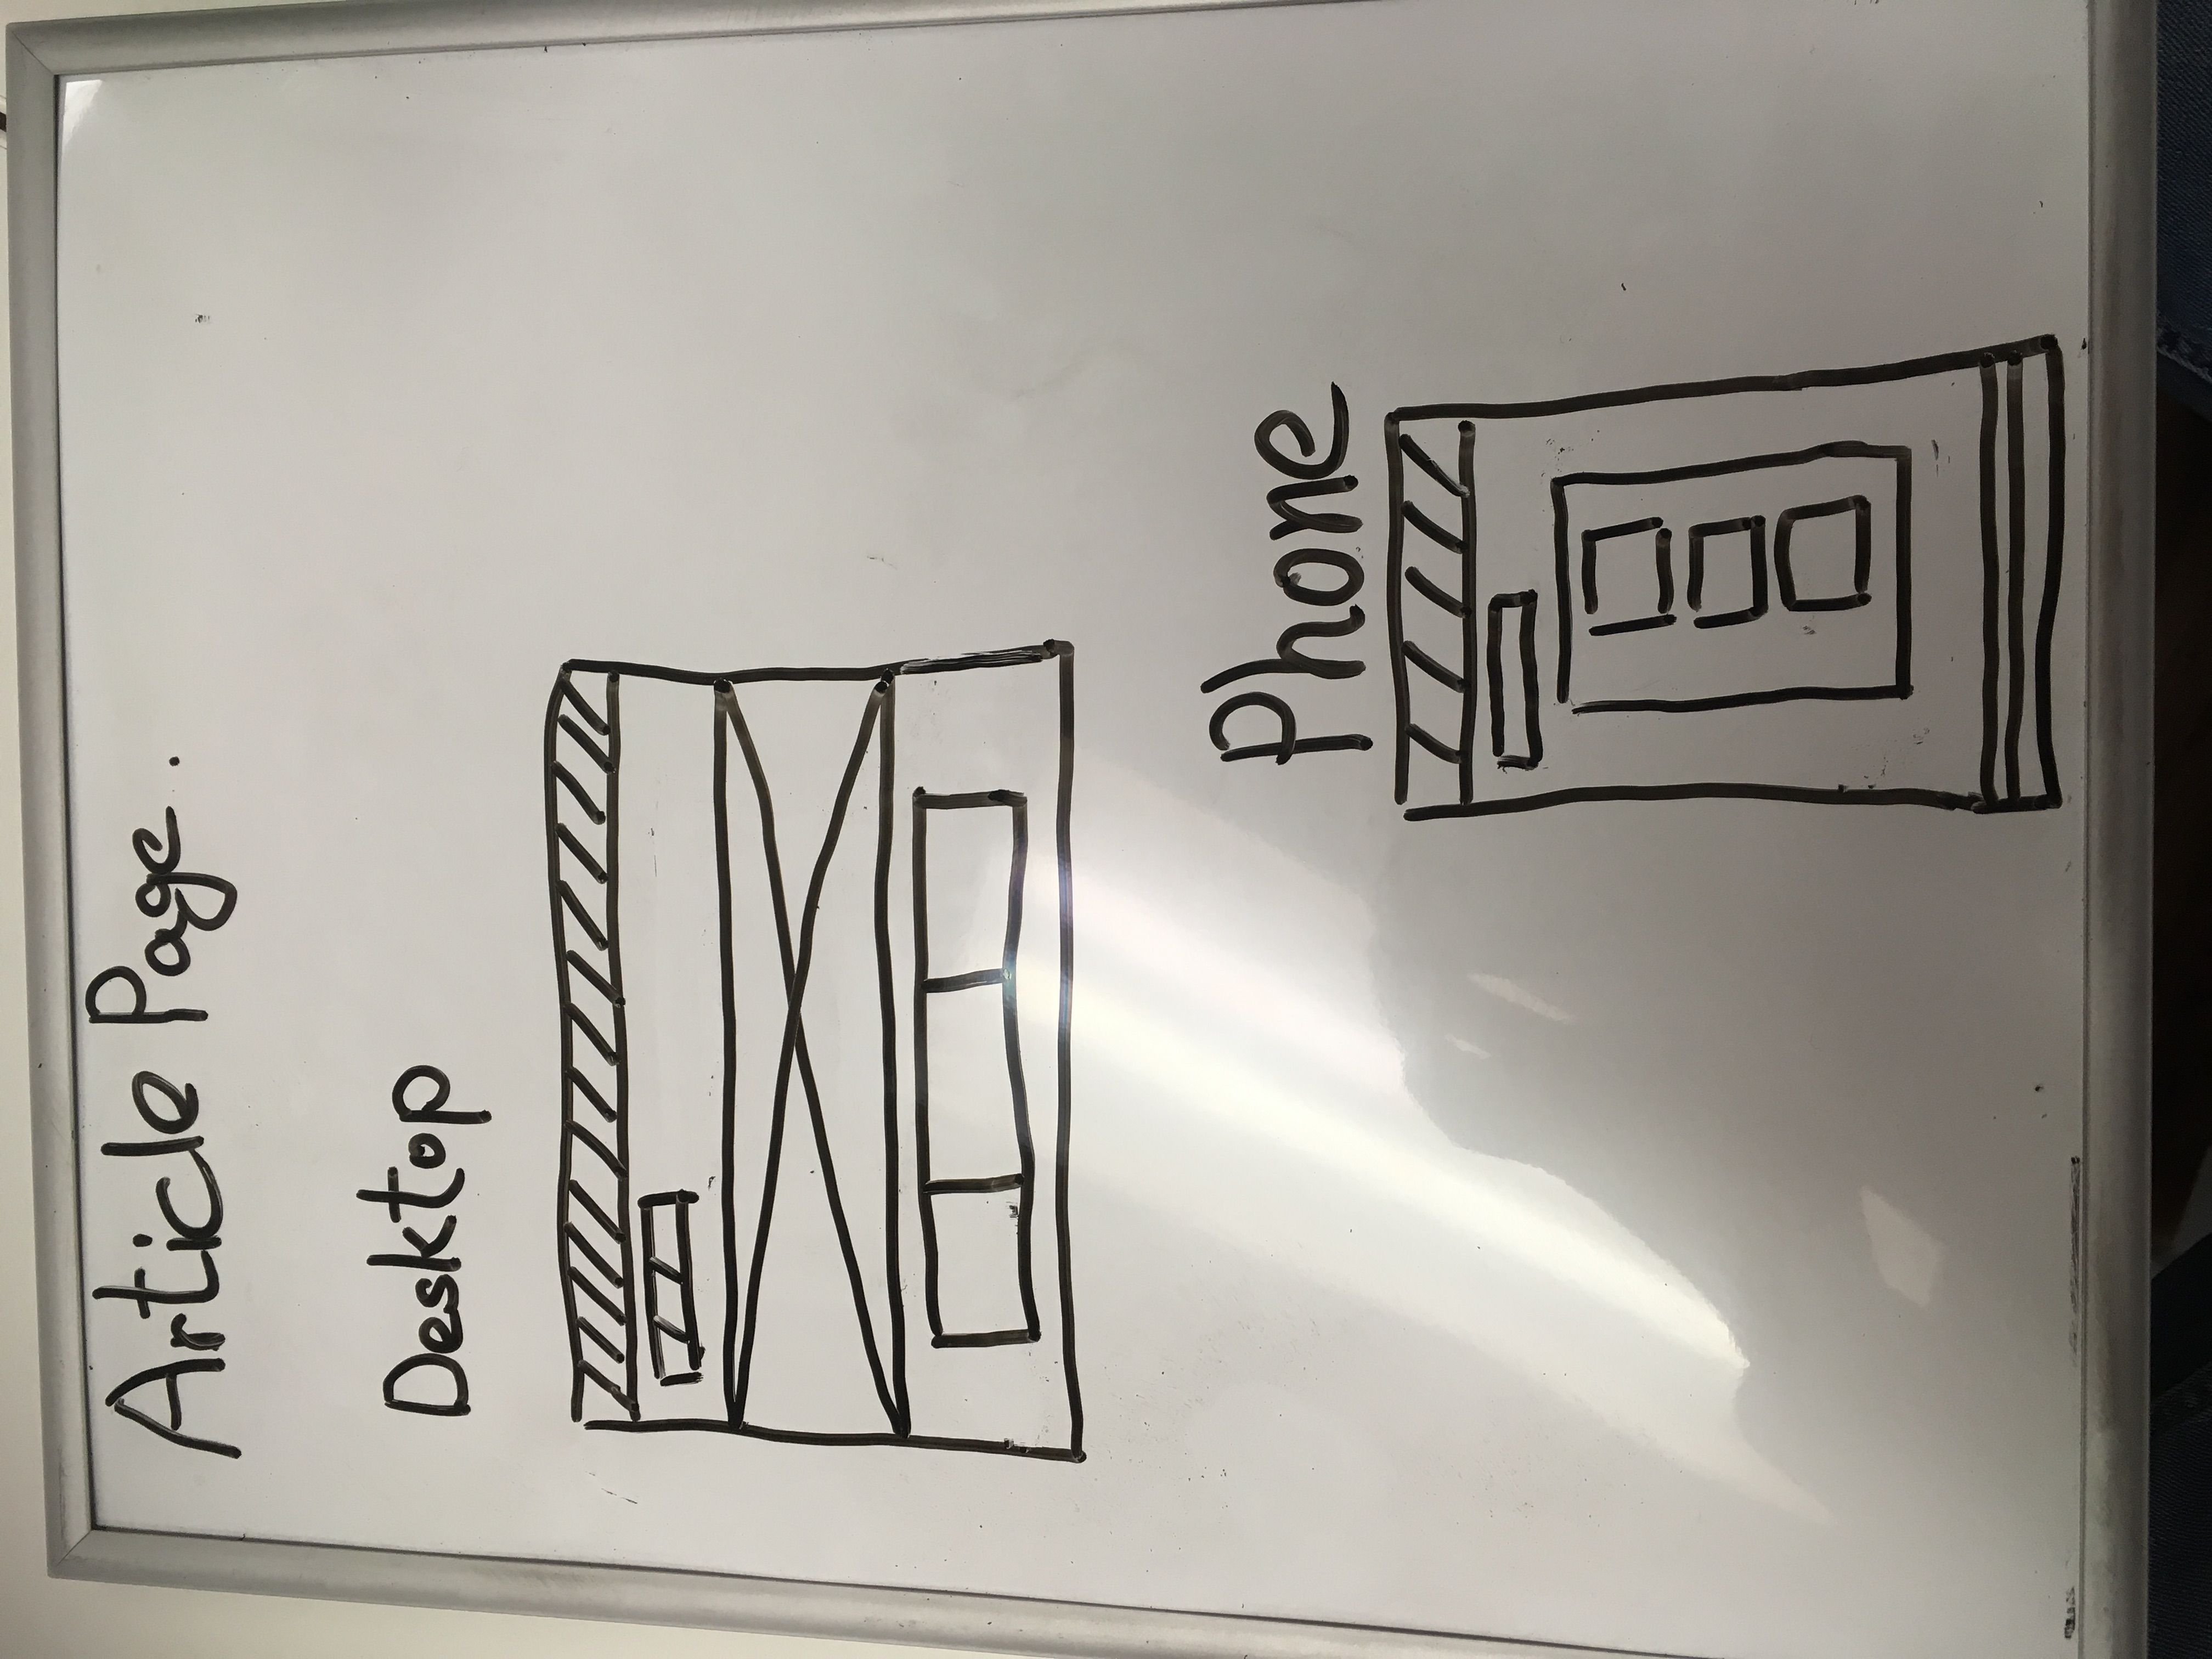 Article Page.
Desktop
Phone